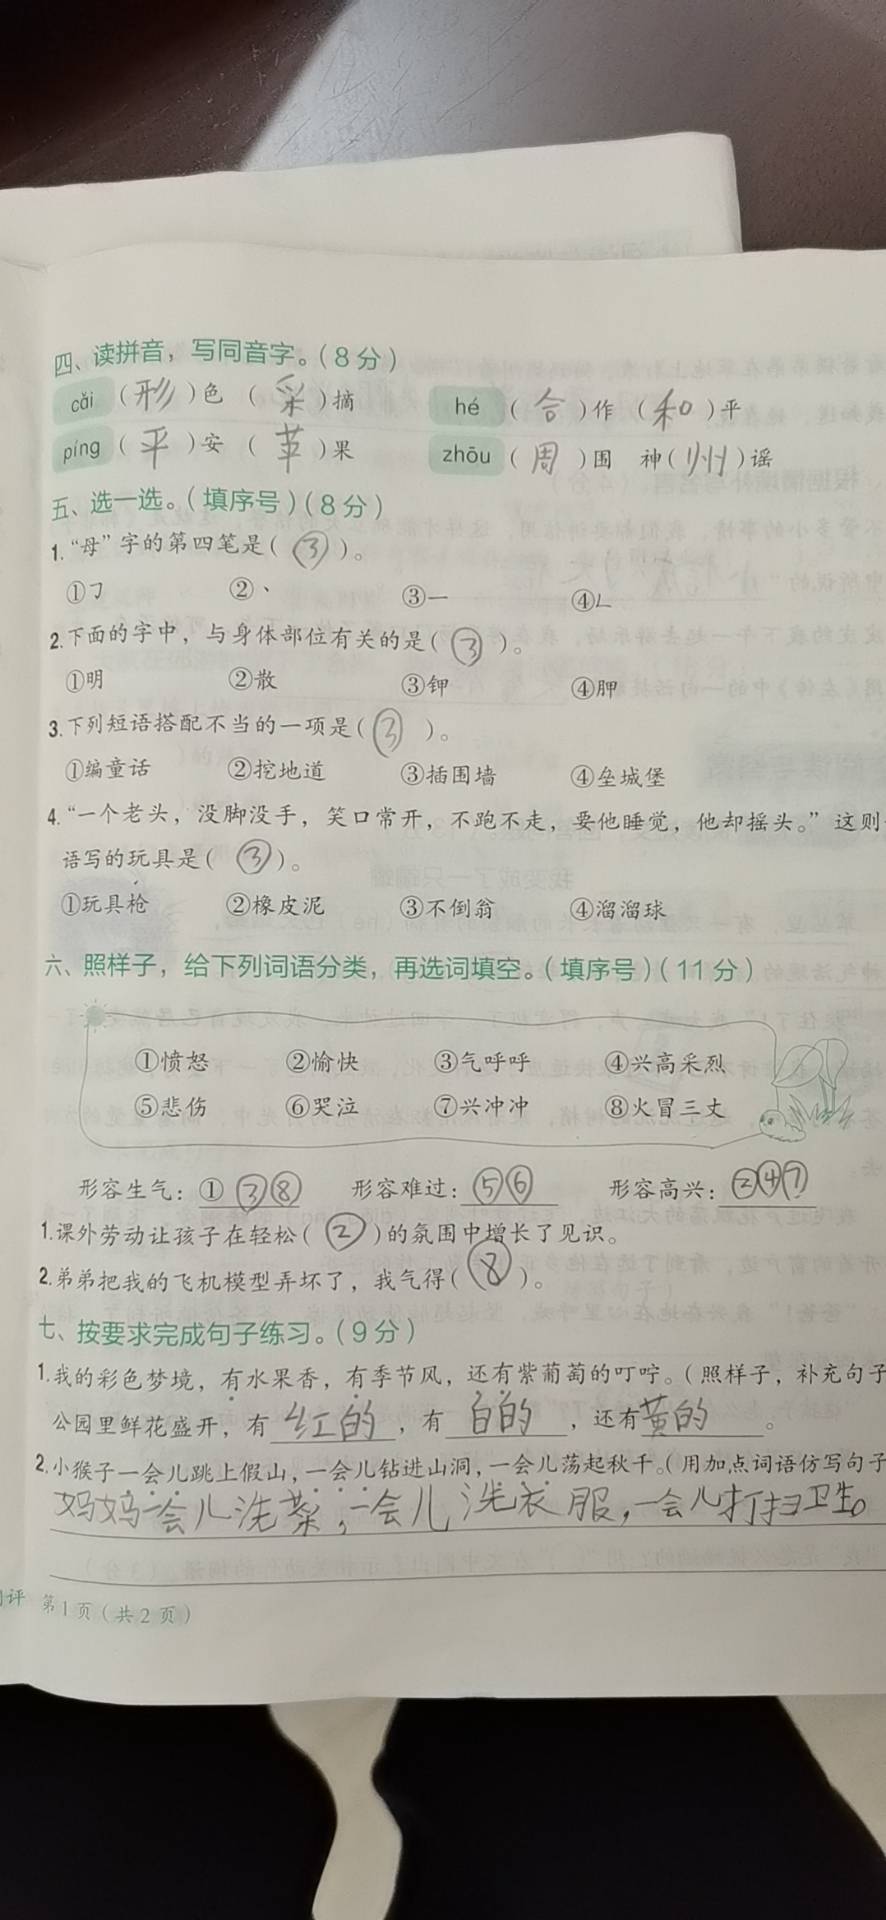 四、读拼音，写同音字。(8分)
cǎi (形)色 (采)摘 hé (合)作 (和)平
píng (平)安 (苹)果 zhōu (周)围 神(州)谣
五、选一选。(填序号)(8分)
1.“母”字的第四笔是(③)。
①㇆ ②丶 ③一 ④㇄
2.下面的字中，与身体部位有关的是(③)。
①明 ②散 ③钾 ④胛
3.下列短语搭配不当的一项是(③)。
①编童话 ②挖地道 ③插围墙 ④垒城堡
4.“一个老头，没脚没手，笑口常开，不跑不走，要他睡觉，他却摇头。”这则
语写的玩具是(③)。
①玩具枪 ②橡皮泥 ③不倒翁 ④溜溜球
六、照样子，给下列词语分类，再选词填空。(填序号)(11分)
①愤怒 ②愉快 ③气呼呼 ④兴高采烈
⑤悲伤 ⑥哭泣 ⑦兴冲冲 ⑧火冒三丈
形容生气：①③⑧ 形容难过：⑤⑥ 形容高兴：②④⑦
1.课外劳动让孩子在轻松(②)的氛围中增长了见识。
2.弟弟把我的飞机模型弄坏了，我气得(⑧)。
七、按要求完成句子练习。(9分)
1.我的彩色梦境，有水果香，有季节风，还有紫葡萄的叮咛。(照样子，补充句子
公园里鲜花盛开，有红的，有白的，还有黄的。
2.小猴子一会儿跳上假山，一会儿钻进山洞，一会儿荡起秋千。(用加点词语仿写句子
妈妈一会儿洗菜，一会儿洗衣服，一会儿打扫卫生。
评 第1页(共2页)